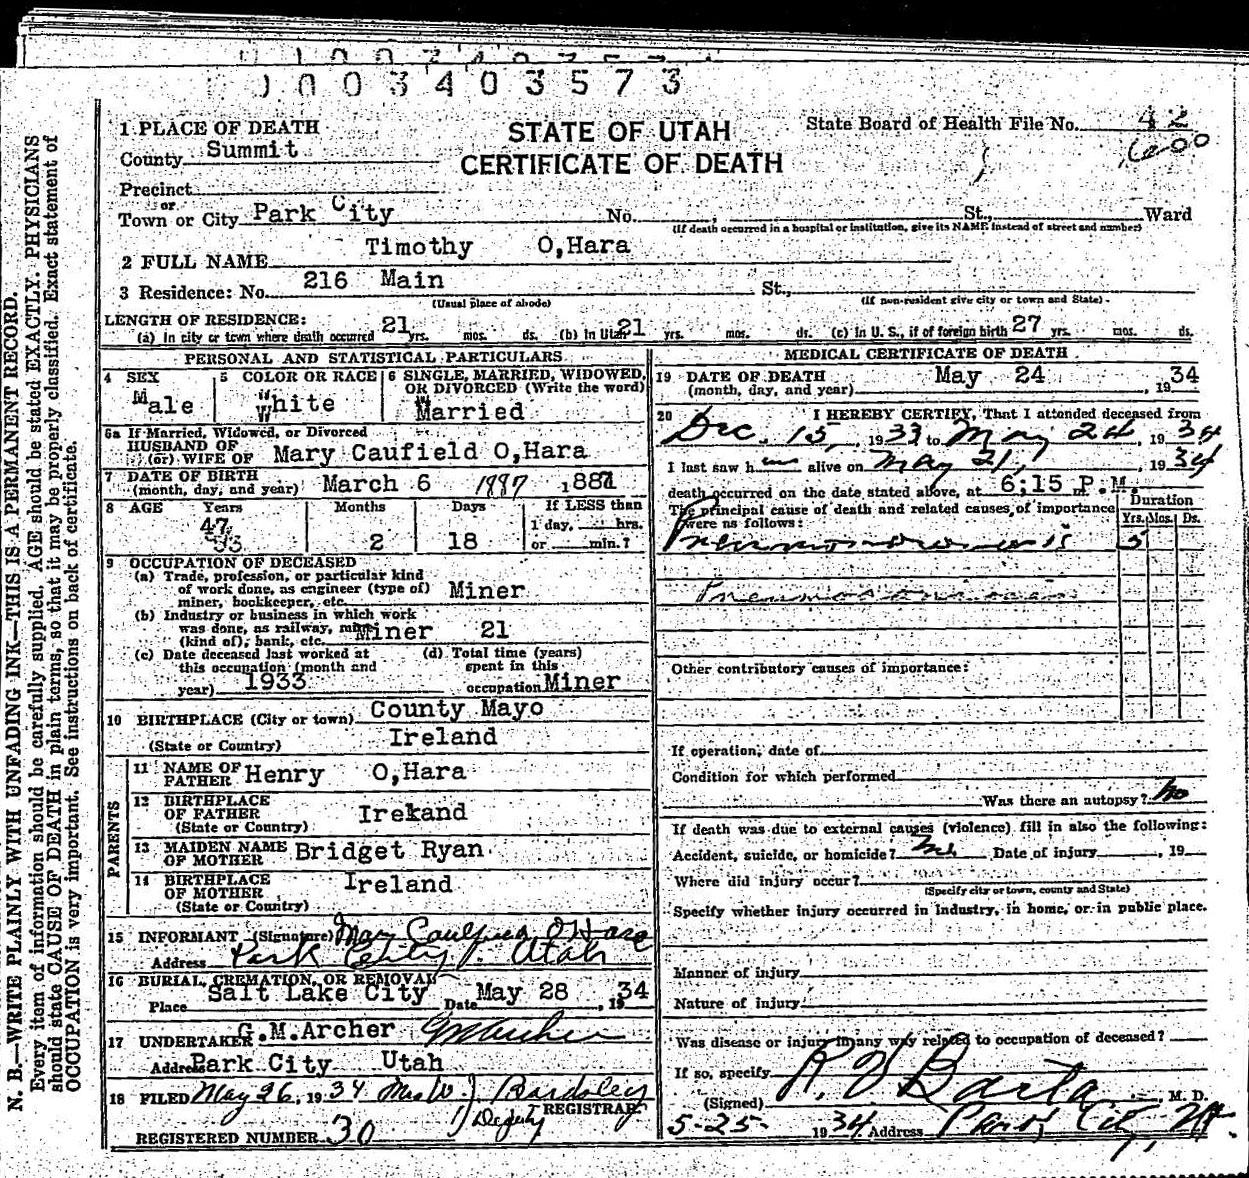 0003403573
1 PLACE OF DEATH
STATE OF UTAH
CERTIFICATE OF DEATH
State Board of Health File No. 42
County Summit
Precinct
or
Town or City Park City No. , St., Ward
(If death occurred in a hospital or institution, give its NAME instead of street and number)
2 FULL NAME Timothy O,Hara
3 Residence: No. 216 Main St.,
(Usual place of abode) (If non-resident give city or town and State)
LENGTH OF RESIDENCE:
(a) In city or town where death occurred 21 yrs. mos. ds. (b) in Utah 21 yrs. mos. ds. (c) in U. S., if of foreign birth 27 yrs. mos. ds.
PERSONAL AND STATISTICAL PARTICULARS
4 SEX
Male
5 COLOR OR RACE
White
6 SINGLE, MARRIED, WIDOWED, OR DIVORCED (Write the word)
Married
6a If Married, Widowed, or Divorced
HUSBAND OF
(or) WIFE OF Mary Caufield O,Hara
7 DATE OF BIRTH
(month, day, and year) March 6 1887 1881
8 AGE Years Months Days If LESS than
47 1 day, hrs.
53 2 18 or min.?
9 OCCUPATION OF DECEASED
(a) Trade, profession, or particular kind
of work done, as engineer (type of) Miner
miner, bookkeeper, etc.
(b) Industry or business in which work
was done, as railway, mine Miner 21
(kind of); bank, etc.
(c) Date deceased last worked at (d) Total time (years)
this occupation (month and spent in this
year) 1933 occupation Miner
10 BIRTHPLACE (City or town) County Mayo
(State or Country) Ireland
PARENTS
11 NAME OF
FATHER Henry O,Hara
12 BIRTHPLACE
OF FATHER Irekand
(State or Country)
13 MAIDEN NAME
OF MOTHER Bridget Ryan
14 BIRTHPLACE
OF MOTHER Ireland
(State or Country)
15 INFORMANT (Signature) Mary Caulfield O'Hara
Address Park City, Utah
16 BURIAL, CREMATION, OR REMOVAL
Place Salt Lake City Date May 28 , 1934
17 UNDERTAKER G.M.Archer GM Archer
Address Park City Utah
18 FILED May 26, 1934 Mrs W. J. Bardsley
REGISTRAR
Deputy
REGISTERED NUMBER 30
MEDICAL CERTIFICATE OF DEATH
19 DATE OF DEATH May 24
(month, day, and year) 1934
20 I HEREBY CERTIFY, That I attended deceased from
Dec. 15, 1933 to May 24, 1934
I last saw him alive on May 21, 1934
death occurred on the date stated above, at 6;15 P.M.
The principal cause of death and related causes of importance
were as follows:
Duration
Yrs. Mos. Ds.
Pneumonoconiosis 5
Other contributory causes of importance:
If operation, date of
Condition for which performed
Was there an autopsy? No
If death was due to external causes (violence) fill in also the following:
Accident, suicide, or homicide? Date of injury , 19
Where did injury occur?
(Specify city or town, county and State)
Specify whether injury occurred in industry, in home, or in public place.
Manner of injury
Nature of injury
Was disease or injury in any way related to occupation of deceased?
If so, specify
(Signed) R. J. Barta , M. D.
5-25- 1934 Address Park City, Ut.
N. B.—WRITE PLAINLY WITH UNFADING INK—THIS IS A PERMANENT RECORD.
Every item of information should be carefully supplied. AGE should be stated EXACTLY. PHYSICIANS
should state CAUSE OF DEATH in plain terms, so that it may be properly classified. Exact statement of
OCCUPATION is very important. See instructions on back of certificate.